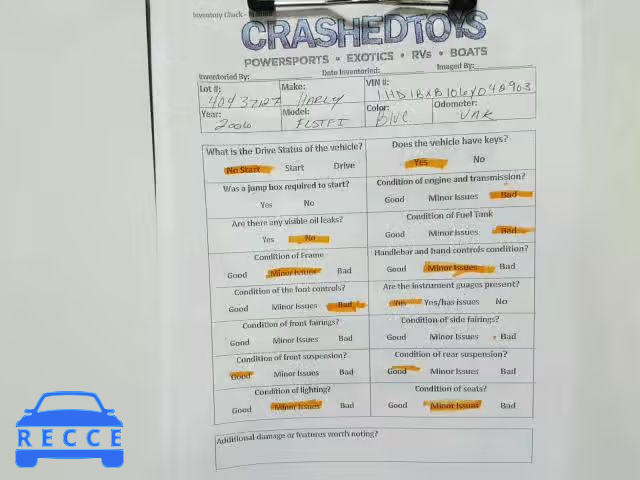 Inventory Check -
CRASHEDTOYS
POWERSPORTS • EXOTICS • RVs • BOATS
Inventoried By: Date Inventoried: Imaged By:
Lot #: Make: VIN #:
HARLY
Year: Model: Color: Odometer:
2006 FLSTFI BLUE UNK
What is the Drive Status of the vehicle? Does the vehicle have keys?
No Start Start Drive Yes No
Was a jump box required to start? Condition of engine and transmission?
Yes No Good Minor Issues Bad
Are there any visible oil leaks? Condition of Fuel Tank
Yes No Good Minor Issues Bad
Condition of Frame Handlebar and hand controls condition?
Good Minor Issues Bad Good Minor Issues Bad
Condition of the font controls? Are the instrument guages present?
Good Minor Issues Bad Yes Yes/has issues No
Condition of front fairings? Condition of side fairings?
Good Minor Issues Bad Good Minor Issues Bad
Condition of front suspension? Condition of rear suspension?
Good Minor Issues Bad Good Minor Issues Bad
Condition of lighting? Condition of seats?
Good Minor Issues Bad Good Minor Issues Bad
Additional damage or features worth noting?
RECCE